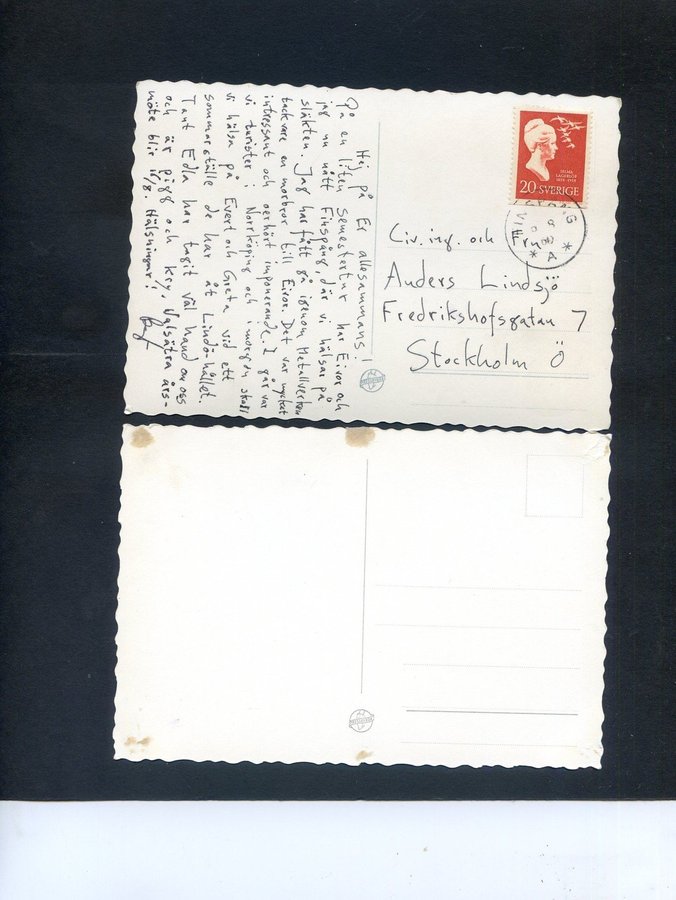 Hej på Er allesammans!
På en liten semestertur har Eivor och
jag nu nått Finspång, där vi hälsar på
släkten. Jag har fått gå igenom Metallverken
tack vare en morbror till Eivor. Det var mycket
intressant och oerhört imponerande. I går var
vi turister i Norrköping och imorgon skall
vi hälsa på Evert och Greta vid ett
sommarställe de har åt Lindöhållet.
Tant Edla har tagit väl hand om oss
och är pigg och kry. Valsätra års-
möte blir 16/8. Hälsningar!
SELMA
LAGERLÖF
1858-1958
20 SVERIGE
Civ.ing. och Fru
Anders Lindsjö
Fredrikshofsgatan 7
Stockholm Ö